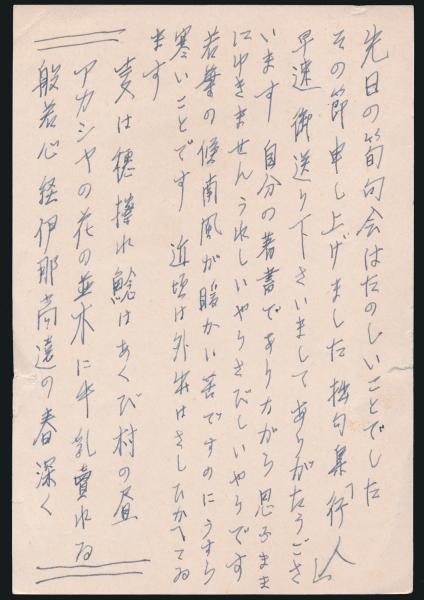 先日の筍句会はたのしいことでした
その節申し上げました拙句集「行人」
早速御送り下さいましてありがたうござ
います 自分の著書でありながら思ふまま
にゆきません うれしいやらさびしいやらです
若葉の候南風が暖かい筈ですのにうすら
寒いことです 近頃は外出はさしひかへてゐ
ます
麦は穂擡れ鯰はあくび村の昼
アカシヤの花の並木に牛乳賣れゐ
般若心経伊那高遠の春深く